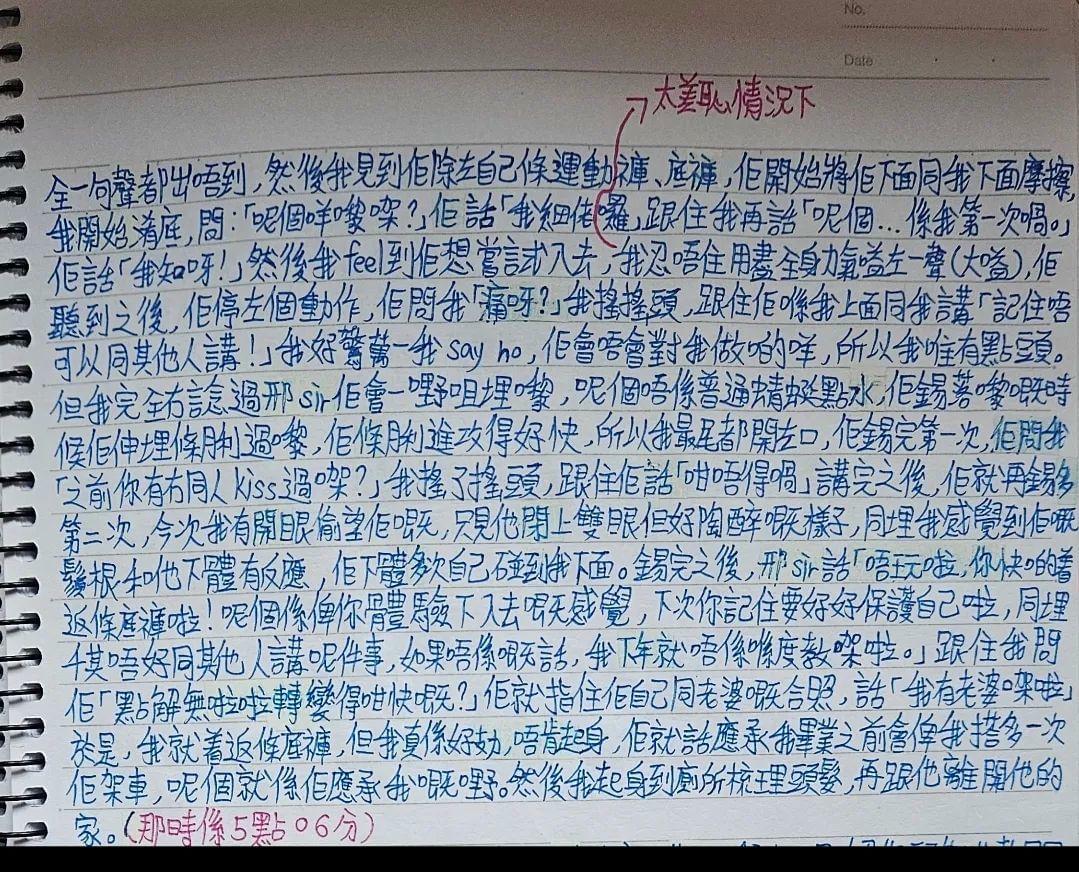 No.
Date
太羞恥情況下
全一句聲都出唔到，然後我見到佢除左自己條運動褲、底褲，佢開始將佢下面同我下面摩擦，
我開始淆底，問：「呢個咩嚟㗎？」佢話「我細佬囉」跟住我再話「呢個…係我第一次喎。」
佢話「我知呀！」然後我feel到佢想嘗試入去，我忍唔住用盡全身力氣嗌左一聲(大嗌)，佢
聽到之後，佢停左個動作，佢問我「痛呀？」我搖搖頭，跟住佢喺我上面同我講「記住唔
可以同其他人講！」我好驚萬一我say no，佢會唔會對我做啲咩，所以我唯有點頭。
但我完全冇諗過邢sir佢會一嘢咀埋嚟，呢個唔係普通蜻蜓點水，佢錫落嚟嘅時
候佢伸埋條脷過嚟，佢條脷進攻得好快，所以我最尾都開左口，佢錫完第一次，佢問我
「之前你有冇同人kiss過㗎？」我搖了搖頭，跟住佢話「咁唔得喎」講完之後，佢就再錫多
第二次，今次我有開眼偷望佢嘅，只見他閉上雙眼但好陶醉嘅樣子，同埋我感覺到佢嘅
鬚根和他下體有反應，佢下體多次自己碰到我下面。錫完之後，邢sir話「唔玩啦，你快啲着
返條底褲啦！呢個係俾你體驗下入去嘅感覺，下次你記住要好好保護自己啦，同埋
千其唔好同其他人講呢件事，如果唔係嘅話，我下年就唔係喺度教㗎啦。」跟住我問
佢「點解無啦啦轉變得咁快嘅？」佢就指住佢自己同老婆嘅合照，話「我有老婆㗎啦」
於是，我就着返條底褲，但我真係好攰，唔肯起身，佢就話應承我畢業之前會俾我搭多一次
佢架車，呢個就係佢應承我嘅嘢。然後我起身到廁所梳理頭髮，再跟他離開他的
家。(那時係5點06分)